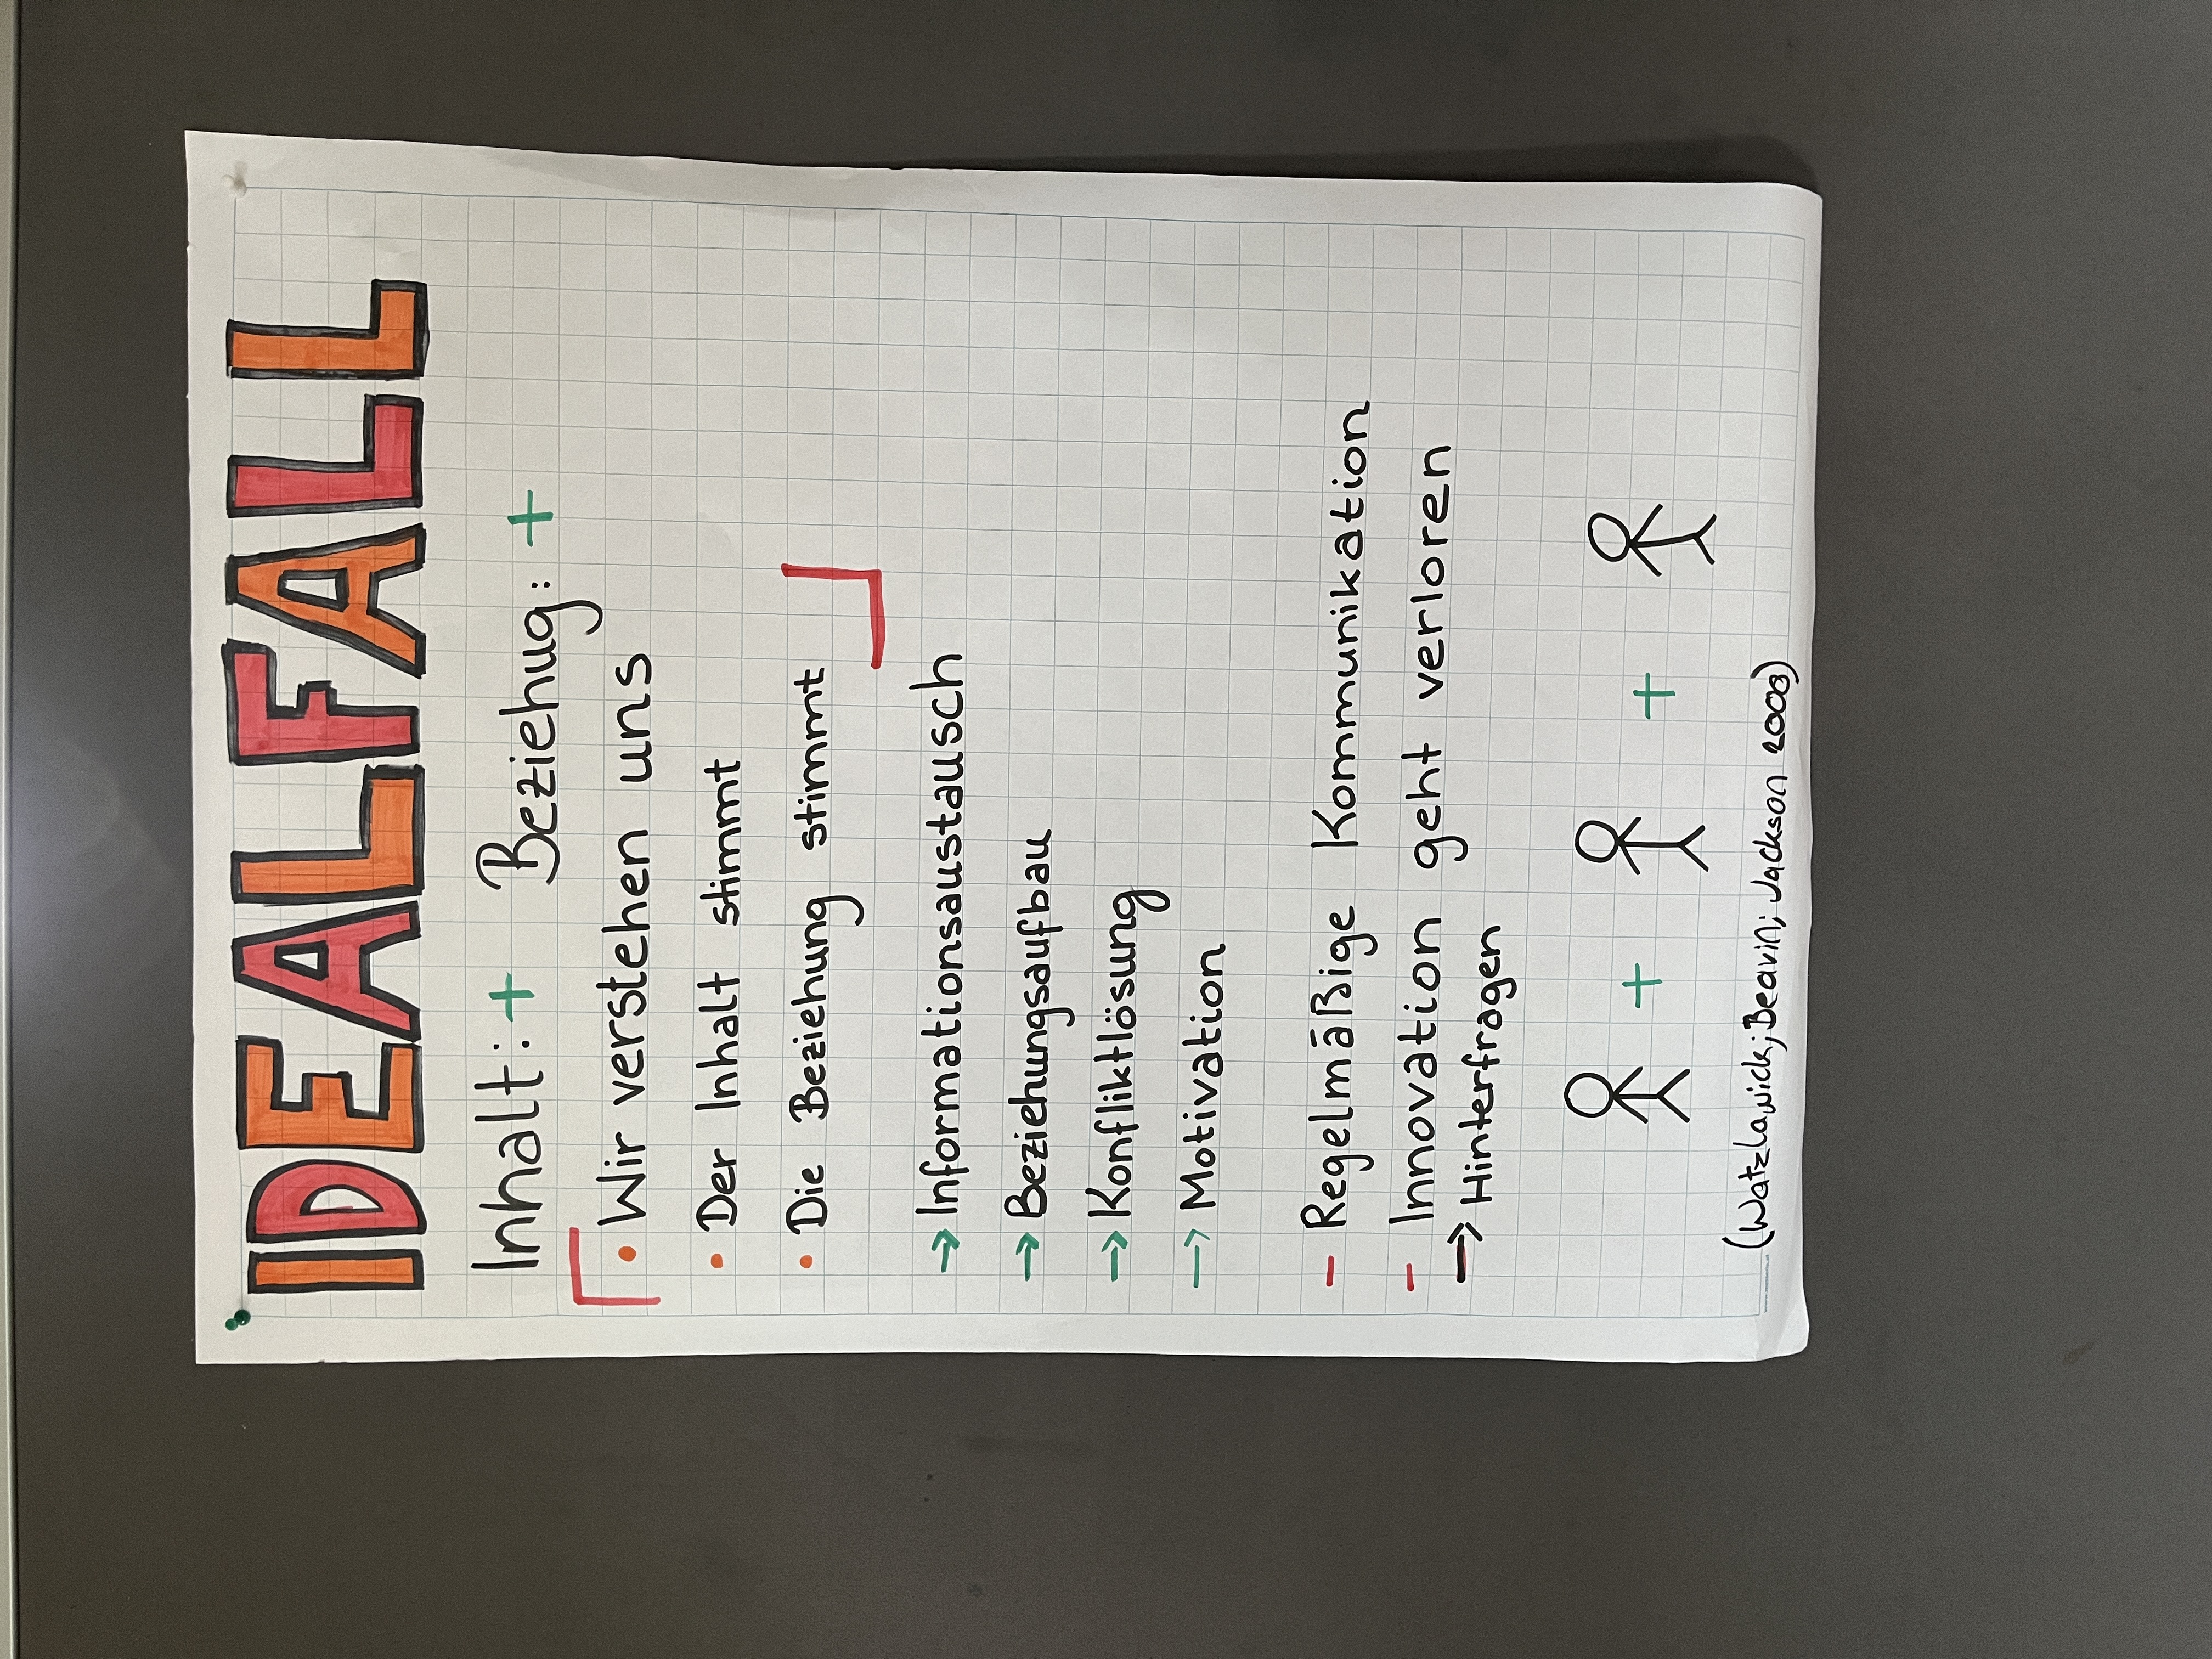 IDEALFALL
Inhalt: + Beziehug: +
• Wir verstehen uns
• Der Inhalt stimmt
• Die Beziehung stimmt
→ Informationsaustausch
→ Beziehungsaufbau
→ Konfliktlösung
→ Motivation
- Regelmäßige Kommunikation
- Innovation geht verloren
→ Hinterfragen
+ +
(Watzlawick; Beavin; Jackson 2003)